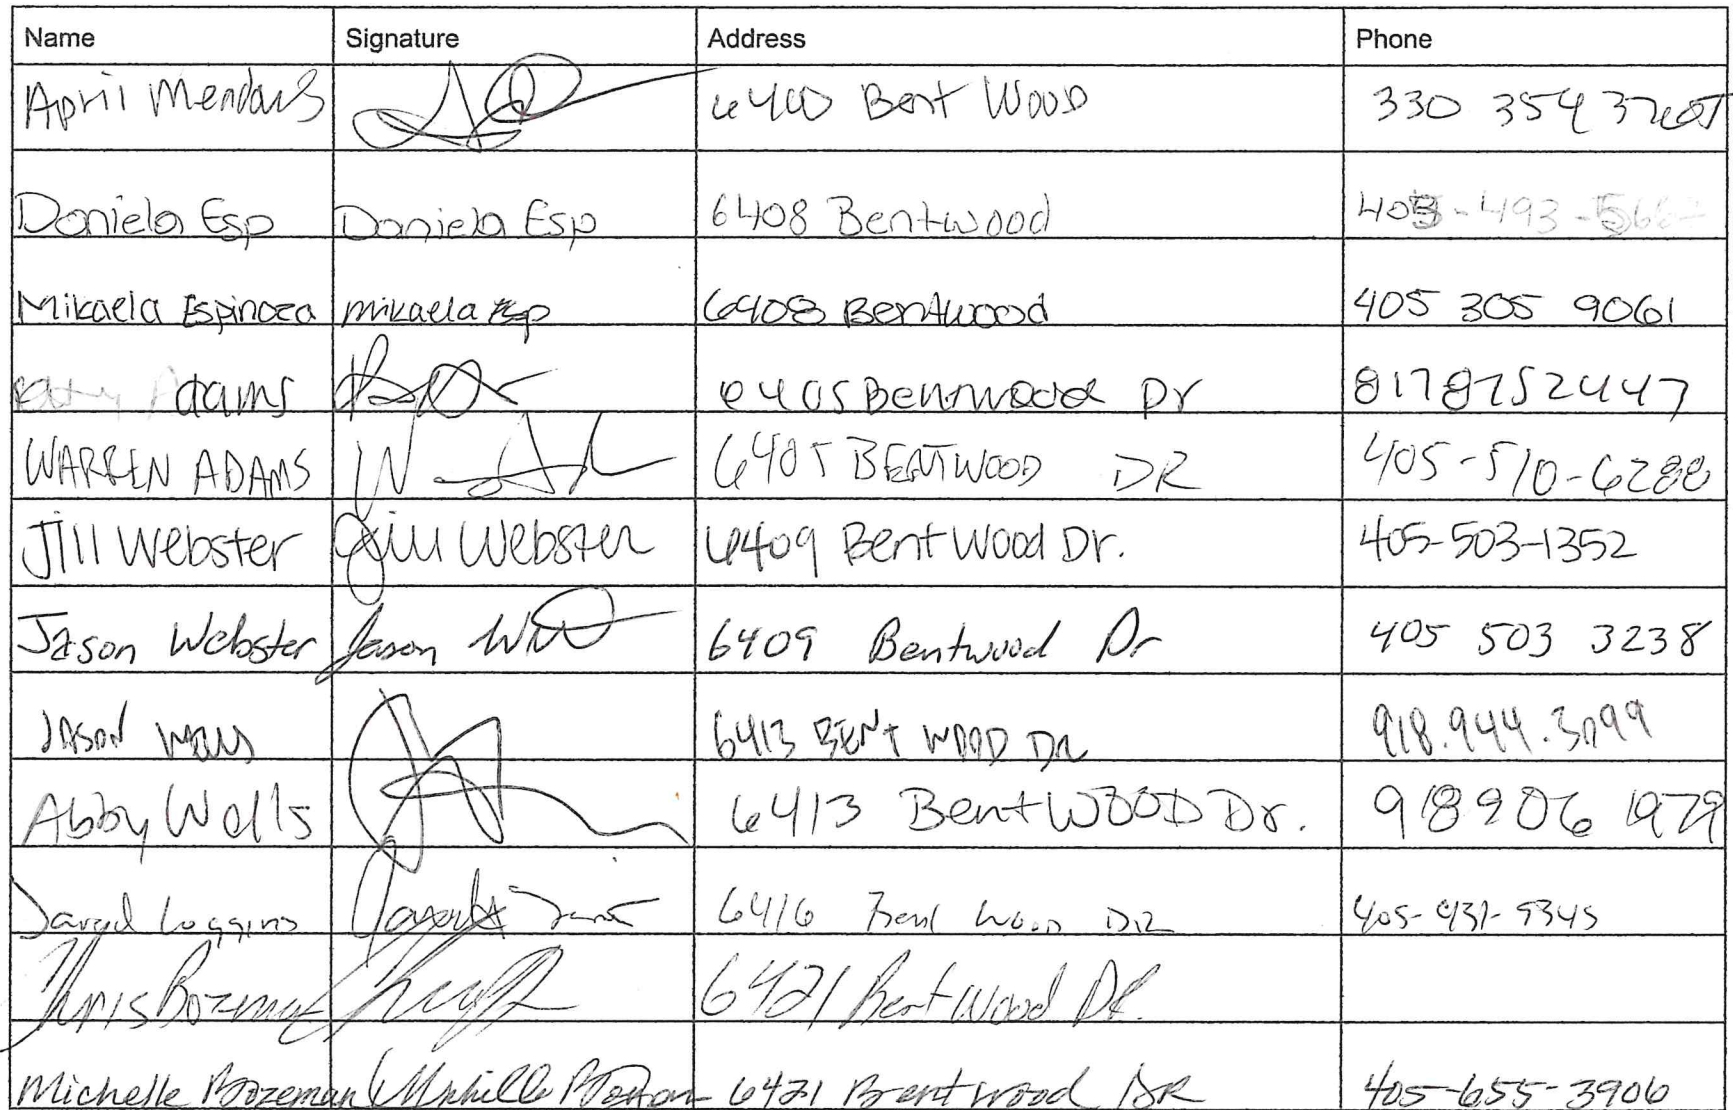 Name Signature Address Phone
April 6400 Bent Wood 330 354
Daniela Esp Daniela Esp 6408 Bentwood 405-493-
Mikaela Espinoza mikaela Esp 6408 Bentwood 405 305 9061
Adams 6405 Bentwood Dr 8178752447
WARREN ADAMS 6405 BENTWOOD DR 405-510-6288
Jill Webster Jill Webster 6409 Bent Wood Dr. 405-503-1352
Jason Webster Jason 6409 Bentwood Dr 405 503 3238
JASON 6413 BENT WOOD DR 918.944.3099
Abby Wells 6413 Bent WOOD Dr. 918 906 1979
Loggins 6416 Bent Wood DR
Chris Bozeman 6421 Bent Wood DR.
Michelle Bozeman Michelle Bozeman 6421 Brentwood DR 405-655-3906